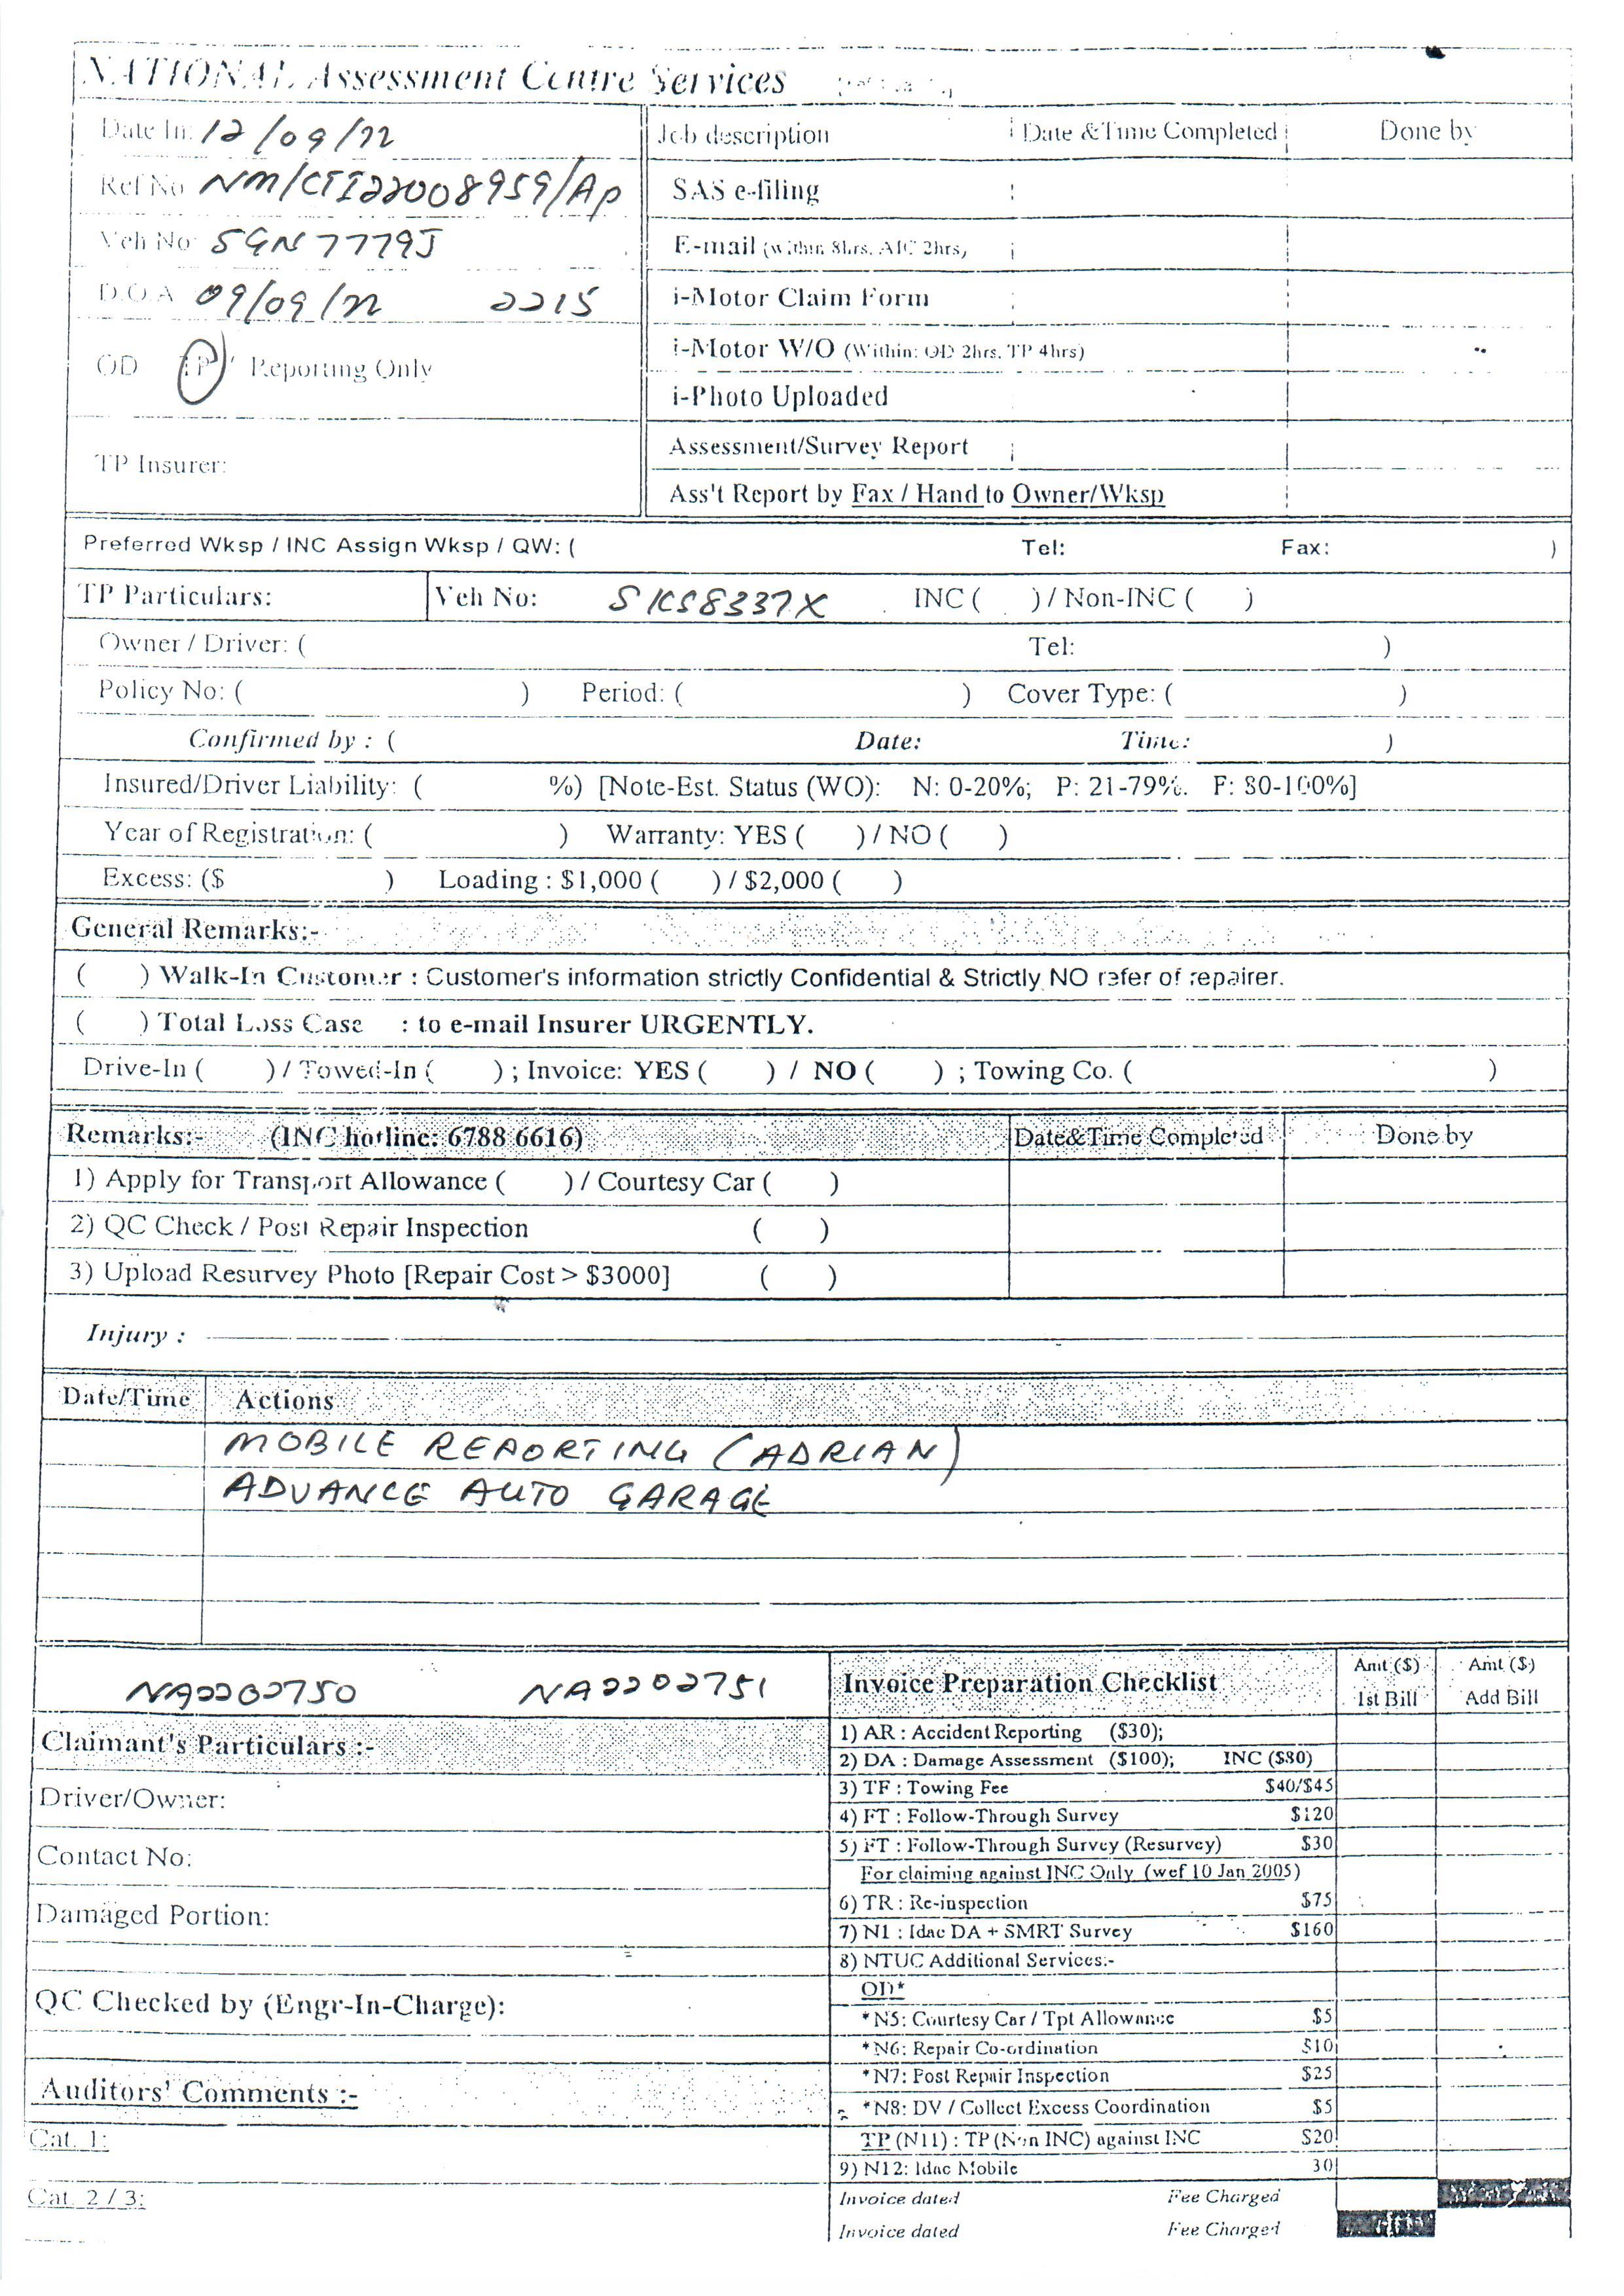 NATIONAL Assessment Centre Services
Date In: 12/09/22 Job description Date & Time Completed Done by
Ref No NM/CTI22008959/AP SAS e-filing
Veh No: SGN7779J E-mail (within 8hrs, AIC 2hrs,
D.O.A 09/09/22 2215 i-Motor Claim Form
i-Motor W/O (Within: OD 2hrs, TP 4hrs)
OD TP / Reporting Only
i-Photo Uploaded
TP Insurer: Assessment/Survey Report
Ass't Report by Fax / Hand to Owner/Wksp
Preferred Wksp / INC Assign Wksp / QW: ( Tel: Fax: )
TP Particulars: Veh No: SKS8337X INC ( ) / Non-INC ( )
Owner / Driver: ( Tel: )
Policy No: ( ) Period: ( ) Cover Type: ( )
Confirmed by : ( Date: Time: )
Insured/Driver Liability: ( %) [Note-Est. Status (WO): N: 0-20%; P: 21-79%. F: 80-100%]
Year of Registration: ( ) Warranty: YES ( ) / NO ( )
Excess: ($ ) Loading : $1,000 ( ) / $2,000 ( )
General Remarks:-
( ) Walk-In Customer : Customer's information strictly Confidential & Strictly NO refer of repairer.
( ) Total Loss Case : to e-mail Insurer URGENTLY.
Drive-In ( ) / Towed-In ( ) ; Invoice: YES ( ) / NO ( ) ; Towing Co. ( )
Remarks:- (INC hotline: 6788 6616) Date&Time Completed Done by
1) Apply for Transport Allowance ( ) / Courtesy Car ( )
2) QC Check / Post Repair Inspection ( )
3) Upload Resurvey Photo [Repair Cost > $3000] ( )
Injury :
Date/Time Actions
MOBILE REPORTING (ADRIAN)
ADVANCE AUTO GARAGE
NA2202750 NA2202751
Invoice Preparation Checklist Amt ($) 1st Bill Amt ($) Add Bill
Claimant's Particulars :-
Driver/Owner:
Contact No:
Damaged Portion:
QC Checked by (Engr-In-Charge):
Auditors' Comments :-
Cat. 1:
Cat. 2 / 3:
1) AR : Accident Reporting ($30);
2) DA : Damage Assessment ($100); INC ($80)
3) TF : Towing Fee $40/$45
4) FT : Follow-Through Survey $120
5) FT : Follow-Through Survey (Resurvey) $30
For claiming against INC Only (wef 10 Jan 2005)
6) TR : Re-inspection $75
7) N1 : Idac DA + SMRT Survey $160
8) NTUC Additional Services:-
OD*
*N5: Courtesy Car / Tpt Allowance $5
*N6: Repair Co-ordination $10
*N7: Post Repair Inspection $25
*N8: DV / Collect Excess Coordination $5
TP (N11) : TP (Non INC) against INC $20
9) N12: Idac Mobile 30
Invoice dated Fee Charged
Invoice dated Fee Charged